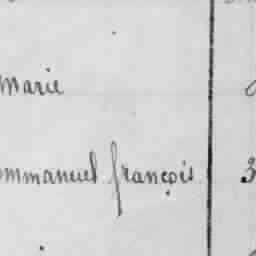 Marie
ommanuel françois 3